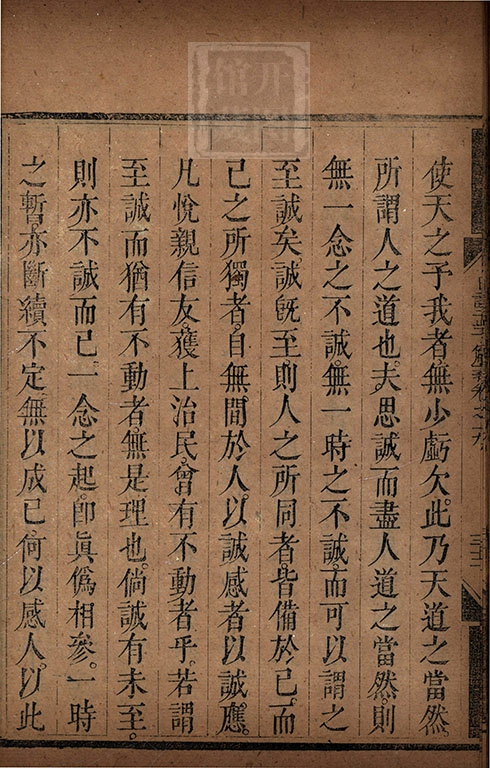 使天之予我者無少虧欠此乃天道之當然
所謂人之道也夫思誠而盡人道之當然則
無一念之不誠無一時之不誠而可以謂之
至誠矣誠旣至則人之所同者皆備於己而
己之所獨者自無間於人以誠感者以誠應
凡悅親信友獲上治民曾有不動者乎若謂
至誠而猶有不動者無是理也倘誠有未至
則亦不誠而已一念之起卽眞僞相參一時
之暫亦斷續不定無以成己何以感人以此